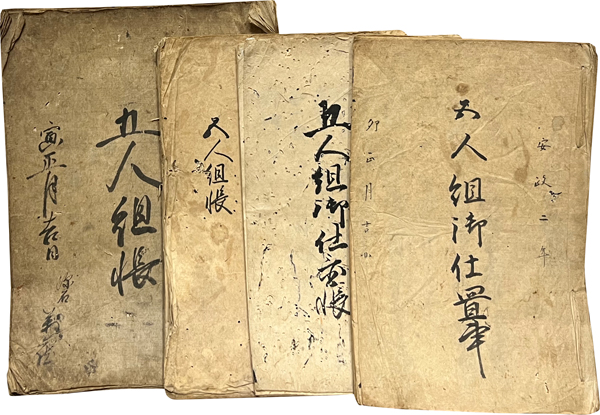 安政二年
五人組御仕置
卯正月吉日
五人組御仕置帳
五人組帳
五人組帳
寅正月吉日